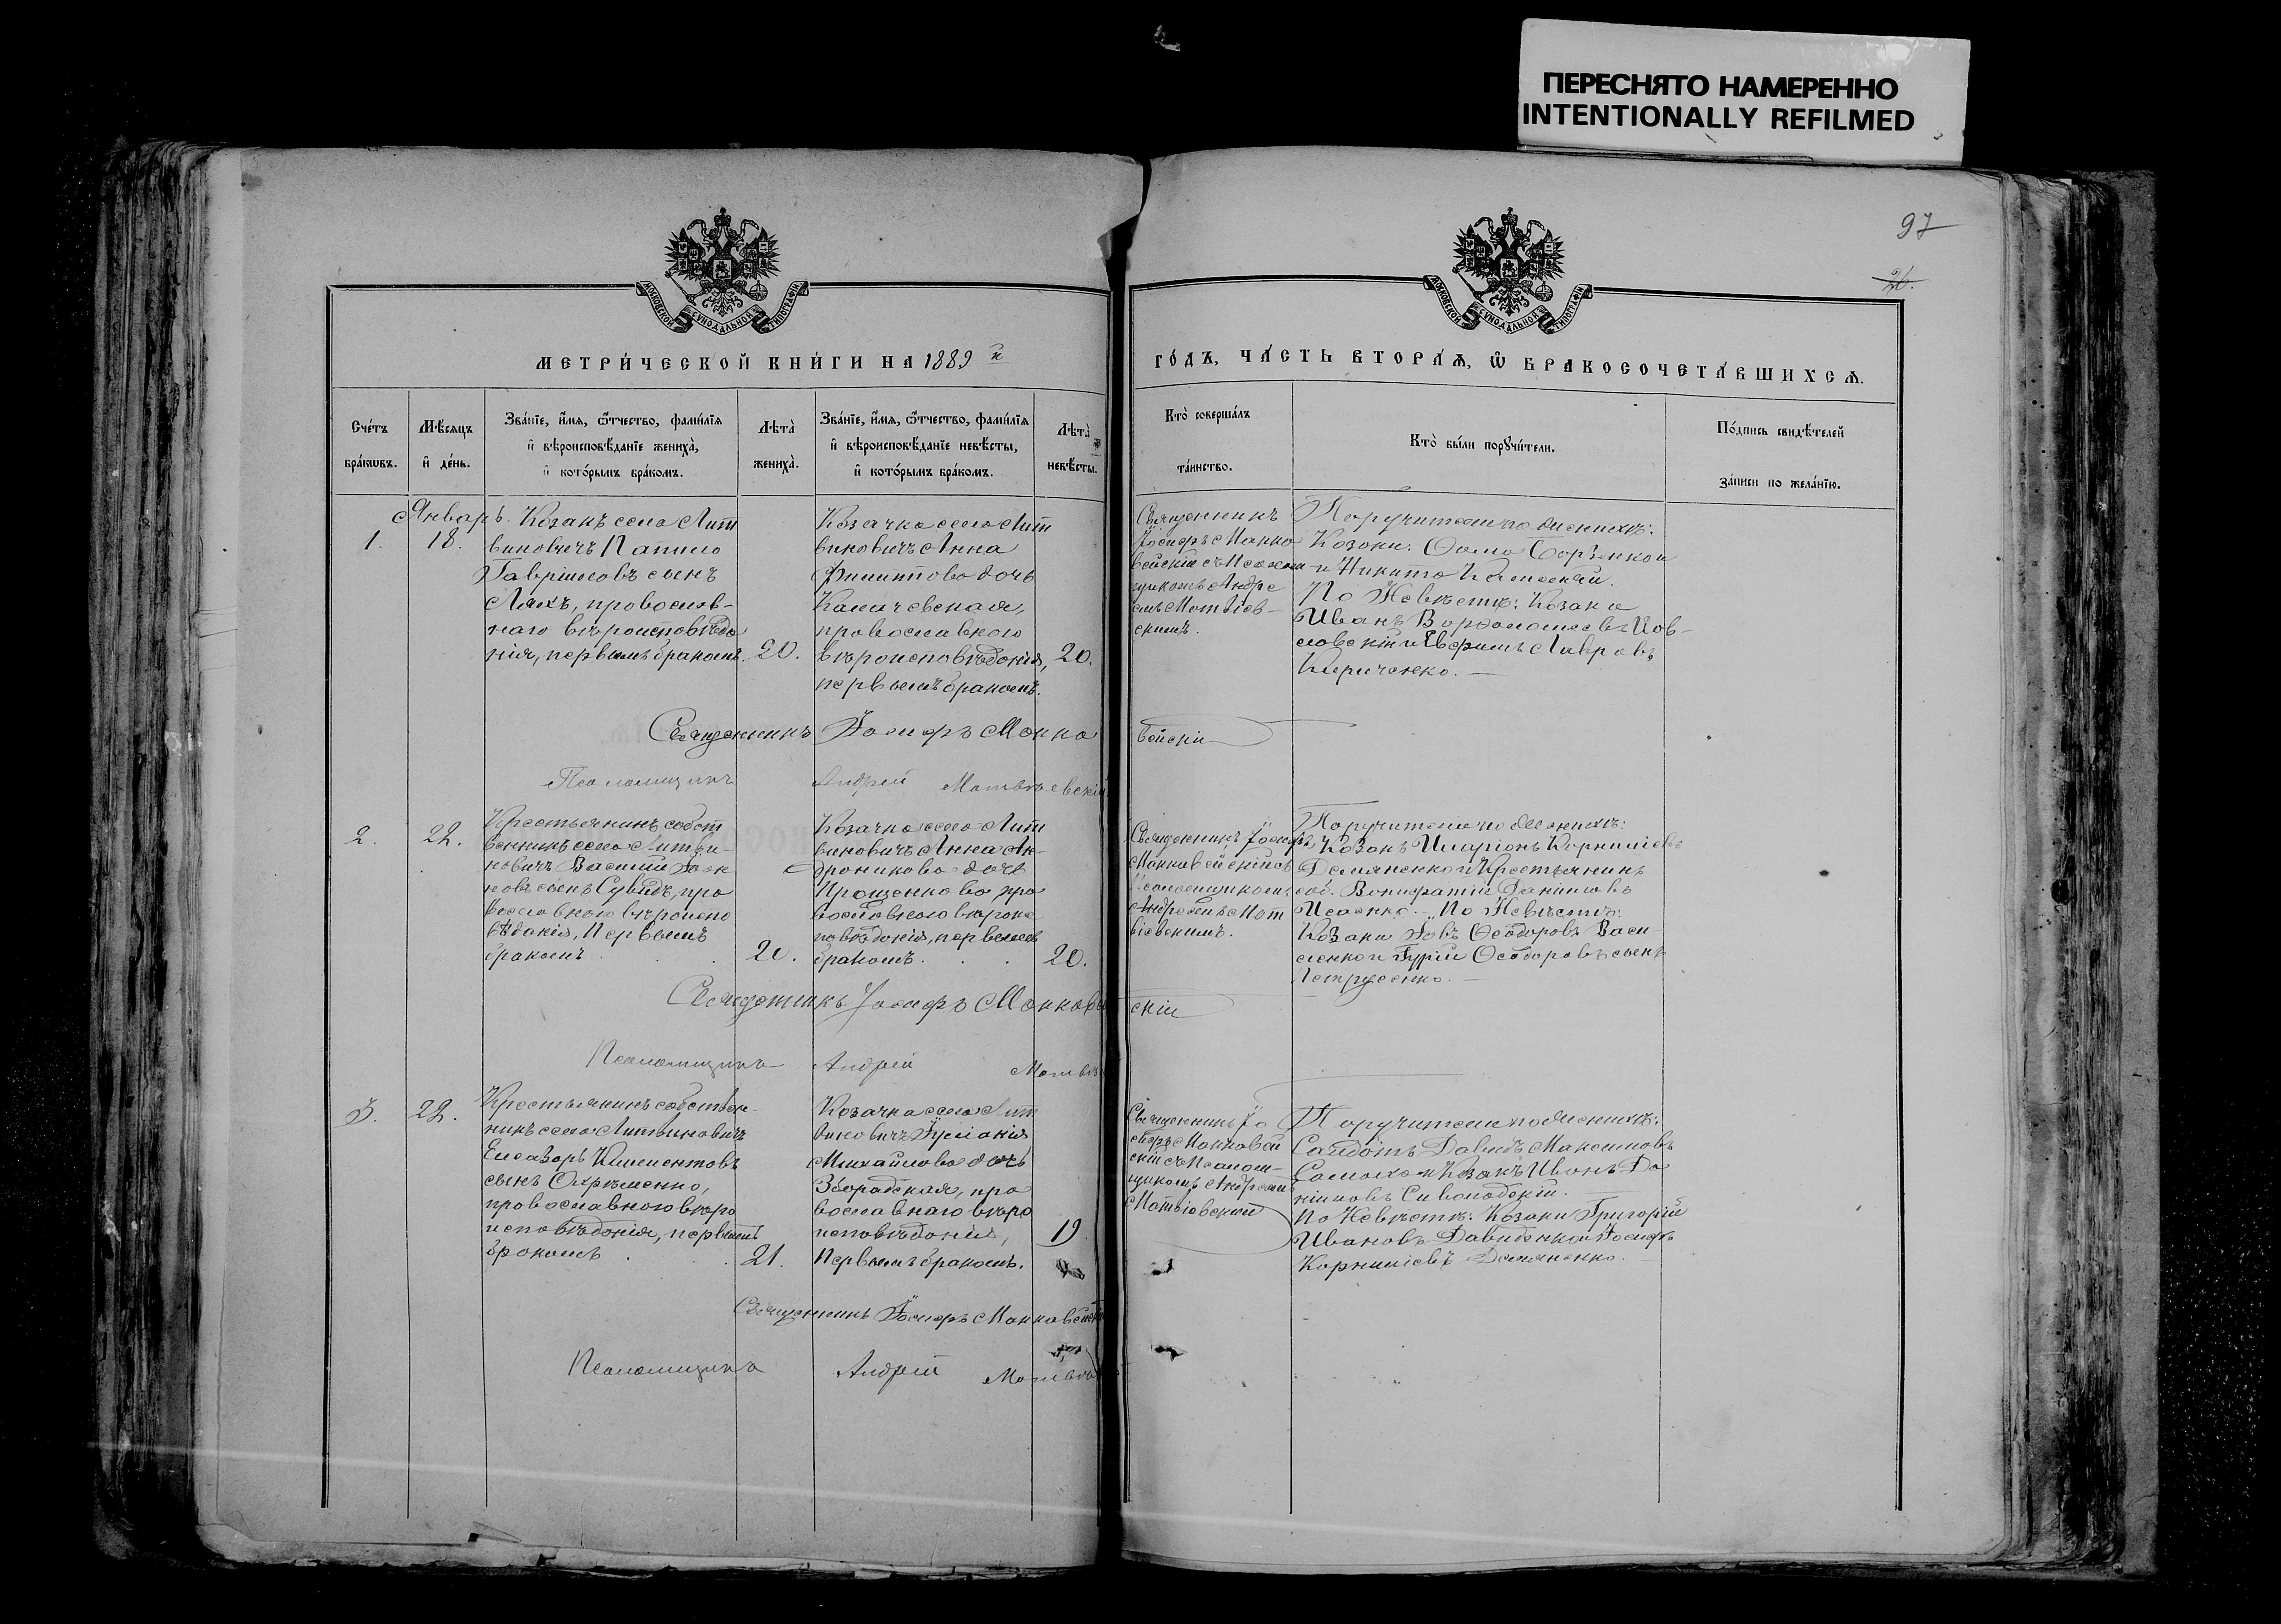 ПЕРЕСНЯТО НАМЕРЕННО
INTENTIONALLY REFILMED
97
26.
МОСКОВСКОЙ СѴНОДАЛЬНОЙ ТИПОГРАФІИ
МОСКОВСКОЙ СѴНОДАЛЬНОЙ ТИПОГРАФІИ
МЕТРИ́ЧЕСКОЙ КНИ́ГИ НА 1889 й
ГО́ДЪ, ЧА́СТЬ ВТОРА́Ѧ, Ѽ БРАКОСОЧЕТА́ВШИХСѦ.
Сче́тъ
бра́кѡвъ.
Мѣ́сяцъ
и҆ де́нь.
Зва́нїе, и҆́мя, ѻ҆́тчество, фами́лїя
и҆ вѣроисповѣ́данїе жениха̀,
и҆ кото́рымъ бра́комъ.
Лѣта̀
жениха̀.
Зва́нїе, и҆́мя, ѻ҆́тчество, фами́лїя
и҆ вѣроисповѣ́данїе невѣ́сты,
и҆ кото́рымъ бра́комъ.
Лѣта̀
невѣ́сты.
Кто̀ соверша́лъ
та́инство.
Кто̀ бы́ли порꙋчи́тели.
По́дпись свидѣ́телей
за́писи по жела́нїю.
Январь.
1.
18.
Козакъ села Лит
виновичъ
Гавріиловъ сынъ
Ляхъ, православ-
наго вѣроисповѣда
нія, первымъ бракомъ.
20.
Козачка села Лит
виновичъ Анна
Филиппова дочь
Каличевская,
православного
вѣроисповѣданія,
первымъ бракомъ.
20.
Священникъ
Іосифъ Манко
вейскій съ Псалом
щикомъ Андре
емъ Матвіев-
скимъ.
Поручители по женихѣ:
Козаки: Фома Борзенко и
и Никита
По Невѣстѣ: Козаки
Иванъ Варфоломеевъ Пов-
ловскій и Евфимъ Лавровъ
Кириченко.
Священникъ Іосифъ Манко
вейскій
Псаломщикъ Андрей Матвѣевскій
2.
22.
Крестьянинъ собст
венникъ села Литви-
новичъ Василій Іоан
новъ сынъ Сувидъ, пра
вославного вѣроиспо
вѣданія, Первымъ
бракомъ
20.
Козачка села Лит
виновичъ Анна Ан-
дроникова дочь
Прощенкова, пра
вославного вѣроис
повѣданія, первымъ
бракомъ.
20.
Священникъ Іосифъ
Манковейскій съ
Псаломщикомъ
Андреемъ Мат
віевскимъ.
Поручители по Женихѣ:
Козакъ Иларіонъ Корниліевъ
Демяненко и Крестьянинъ
соб. Вонифатій Даніиловъ
Исаенко. По Невѣстѣ:
Козаки Іовъ Ѳеодоровъ Васи
ленко и Гурій Ѳеодоровъ сынъ
Петрусенко.
Священникъ Іосифъ Манковей
скій
Псаломщикъ Андрей Матвѣ
3.
22.
Крестьянинъ собствен-
никъ села Литвиновичъ
Елеазаръ Климентовъ
сынъ Охрѣменко,
православного вѣро
исповѣданія, первымъ
бракомъ
21.
Козачка села Лит
виновичъ Іуліанія
Михайлова дочь
Збарадская, пра
вославнаго вѣро
исповѣданія,
Первымъ бракомъ.
19
Священникъ Іо
сифъ Манковей
скій съ Псалом-
щикомъ Андреемъ
Матвіевской
Поручители по женихѣ:
Солдатъ Давидъ Максимовъ
Самоха и Козакъ Иванъ Да
ніиловъ
По Невѣстѣ: Козаки Григорій
Ивановъ Давиденко и Іосифъ
Корниліевъ Демяненко.
Священникъ Іосифъ Манковейскій
Псаломщикъ Андрей Матвѣ